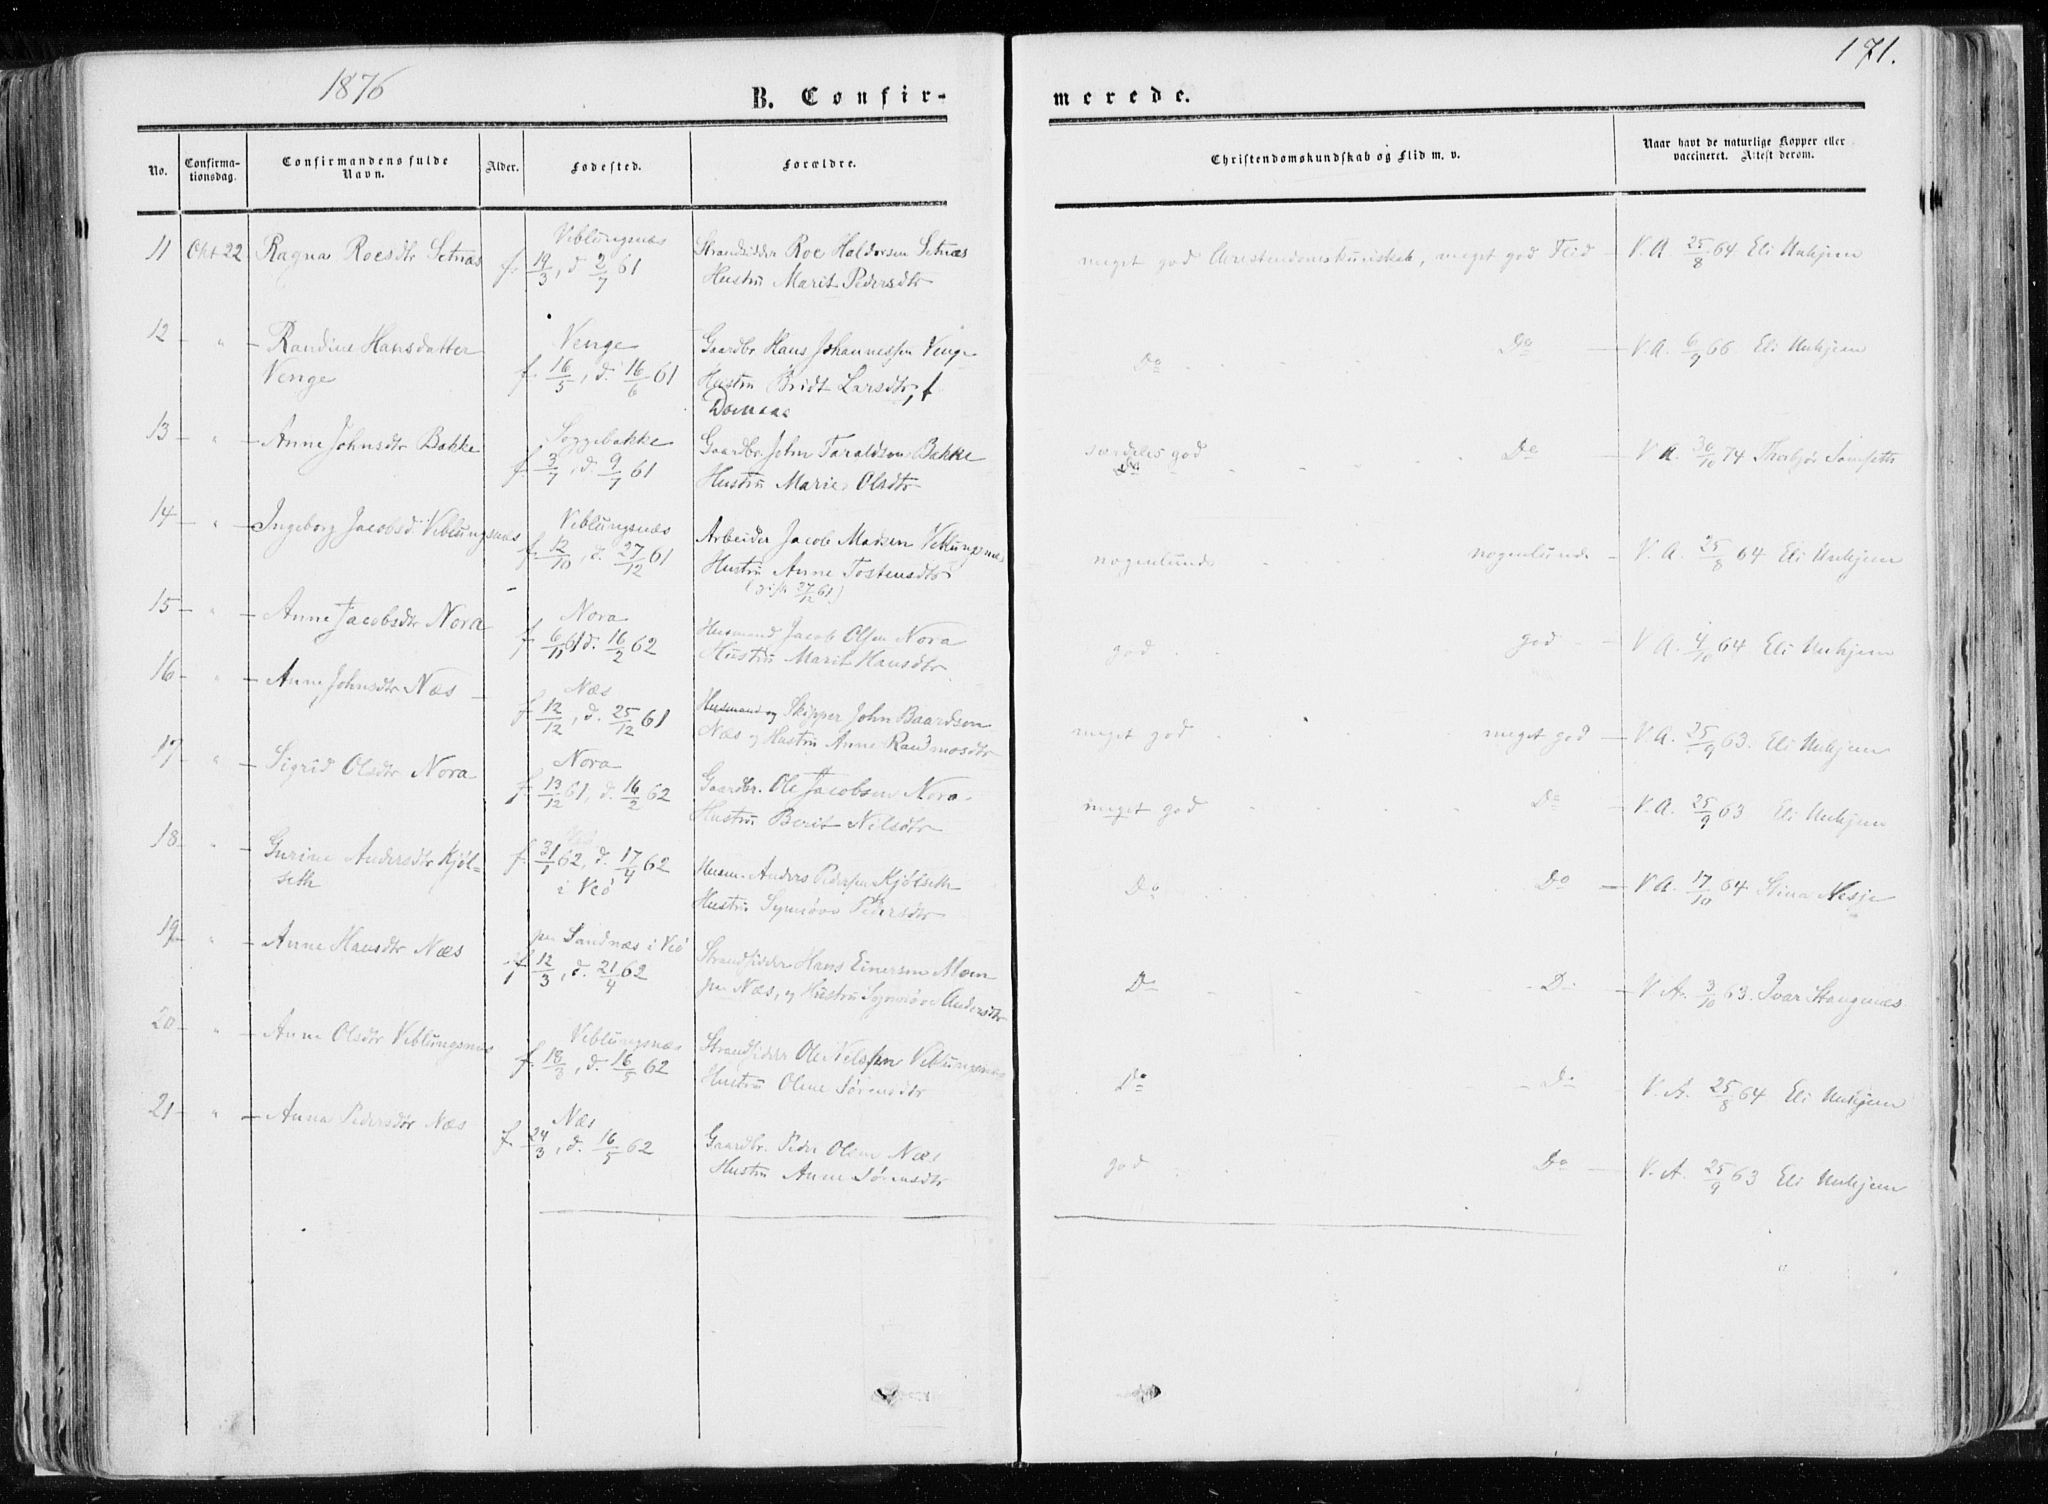 1876
B. Confir-
merede.
171.
No.
Confirma-
tionsdag.
Confirmandens fulde
Navn.
Alder.
Fødested.
Forældre.
Christendomskundskab og Flid m. v.
Naar havt de naturlige Kopper eller
vaccineret. Attest derom.
11 Okt 22 Ragna Roesdtr Setnæs
Veblungsnæs
f. 19/3, d. 2/7 61
Strandsidder Roe Haldorsen Setnæs
Hustru Marit Pedersdtr
meget god Christendomskundskab, meget god Flid - V. A. 25/8 64 Eli Unhjem
12 - " - Randine Hansdatter
Venge
Venge
f. 16/5, d. 16/6 61
Gaardbr. Hans Johannessen Venge
Hustru Bridt Larsdtr, f
Do Do - V. A. 6/9 66. Eli Unhjem
13 - " - Anne Johnsdtr Bakke
Soggebakke
f. 3/7, d. 9/7 61
Gaardbr. John Taraldsen Bakke
Hustru Marie Olsdtr
særdeles god
Do
Do - V A. 30/10 74 Thorbjør
14 - " - Ingeborg Jacobsd. Veblungsnæs
Veblungsnæs
f. 12/10, d. 27/12 61
Arbeider Jacob Madsen Veblungsnæs
Hustru Anne Tostensdtr
(gift 27/12 61)
nogenlunde nogenlunde - V. A. 25/8 64 Eli Unhjem
15 - " - Anne Jacobsdtr Nora
Nora
f. 6/11 61 d. 16/2 62
Husmand Jacob Olsen Nora
Hustru Marit Hansdtr
god god - V A. 4/10 64 Eli Unhjem
16 - " - Anne Johnsdtr Næs -
Næs
f. 12/12, d. 25/12 61
Husmand og Skipper John Baardsen
Næs og Hustru Anne Rasmusdtr
meget god meget god - V A. 25/9 63. Eli Unhjem
17 - " - Sigrid Olsdtr Nora
Nora
f. 19/12 61, d. 16/2 62
Gaardbr. Ole Jacobsen Nora
Hustru Berit Nilsdtr
meget god Do - V. A. 25/9 63 Eli Unhjem
18 - " - Gurine Andersdtr Kjøl-
seth
f. 31/1 62, d. 17/4 62
i Veø
Husm. Anders Pedersen Kjølseth
Hustru Synnøve Pedersdtr
Do Do - V A. 17/10 64 Stina Nesje
19 - " - Anne Hansdtr Næs
paa Sandnæs i Veø
f. 12/3, d. 21/4 62
Strandsidder Hans Einersen Moen
paa Næs, og Hustru Synnøve Andersdtr
Do Do - V. A. 3/10 63. Ivar Stangnæs
20 - " - Anne Olsdtr Veblungsnæs
Veblungsnæs
f. 18/3, d. 16/5 62
Strandsidder Ole Nilssen Veblungsnæs
Hustru Oline Sørensdtr
Do Do - V. A. 25/8 64 Eli Unhjem
21 - " - Anna Pedersdtr Næs
Næs
f. 24/3, d. 16/5 62
Gaardbr. Peder Olsen Næs
Hustru Anne Sørensdtr
god Do - V. A. 25/9 63 Eli Unhjem